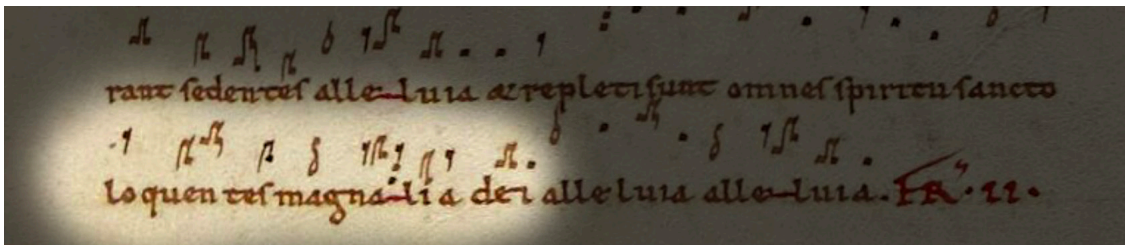 rant sedentes alleluia et repleti sunt omnes spiritu sancto
loquentes magnalia dei alleluia alleluia. FR. II.